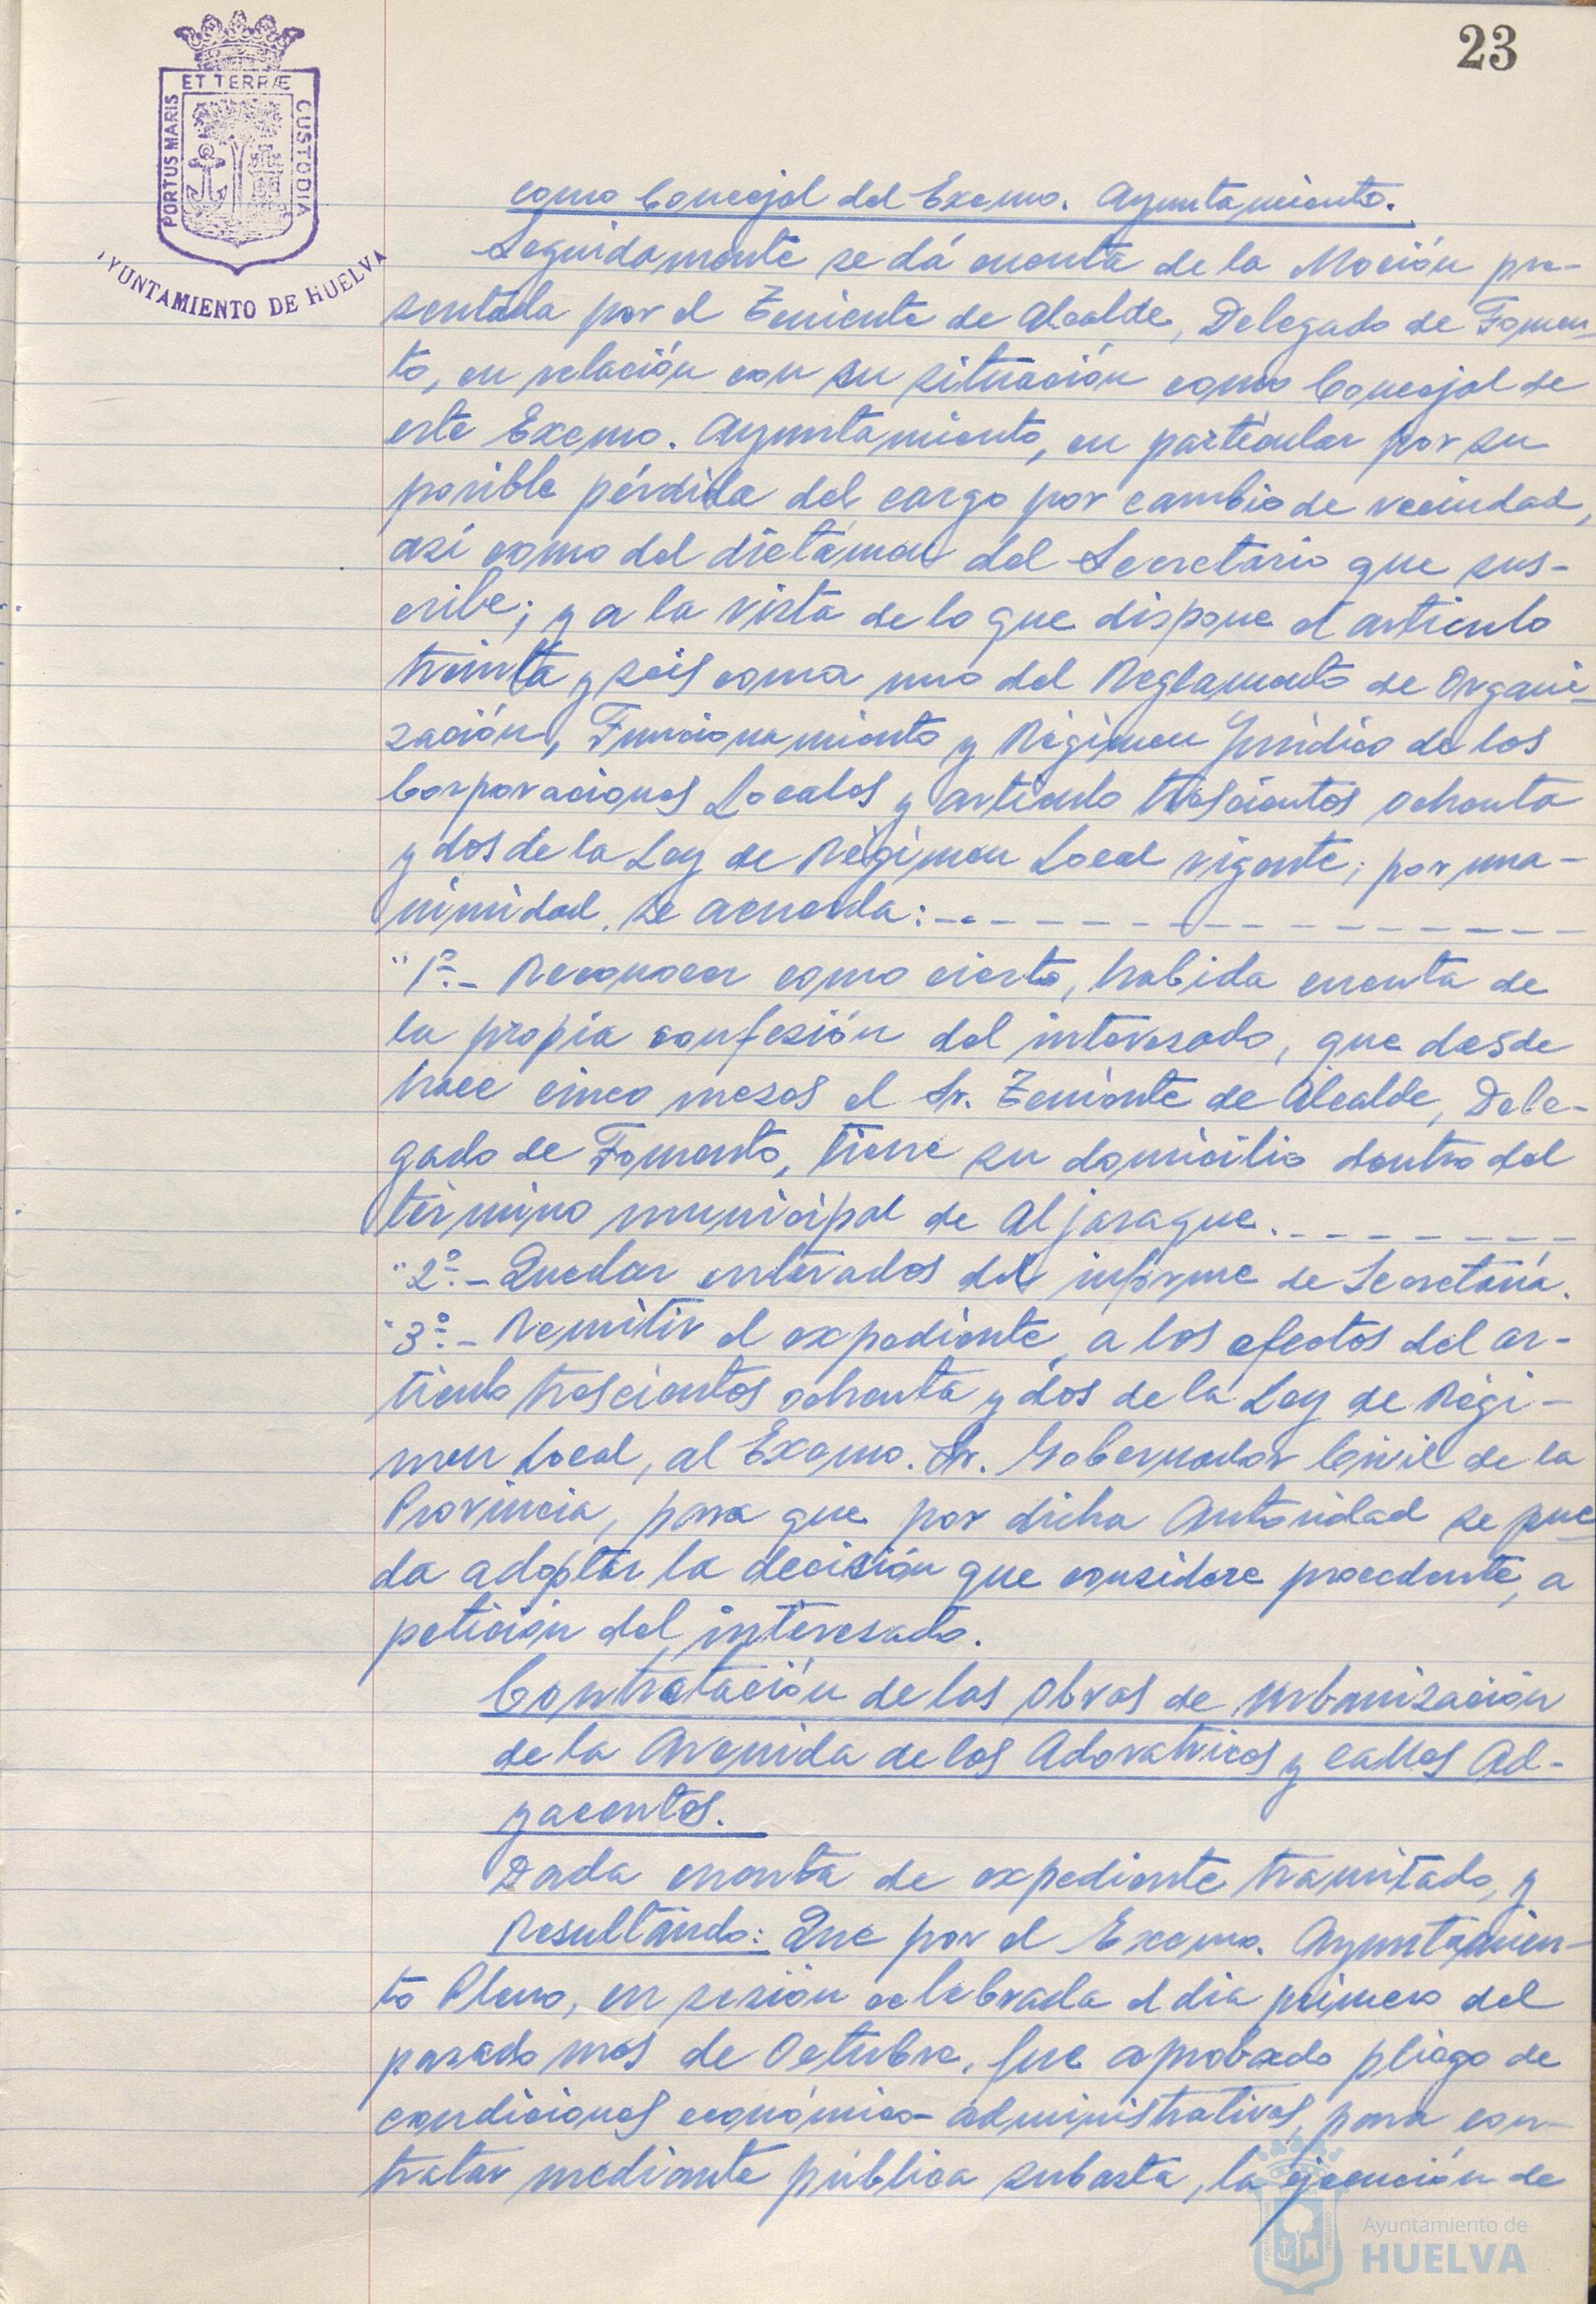 23
ET TERRÆ
PORTUS MARIS
CUSTODIA
AYUNTAMIENTO DE HUELVA
como Concejal del Excmo. Ayuntamiento.
Seguidamente se dá cuenta de la Moción pre-
sentada por el Teniente de Alcalde, Delegado de Fomen-
to, en relación con su situación como Concejal de
este Excmo. Ayuntamiento, en particular por su
posible pérdida del cargo por cambio de vecindad,
así como del dictámen del Secretario que sus-
cribe; y a la vista de lo que dispone el artículo
treinta y seis coma uno del Reglamento de Organi-
zación, Funcionamiento y Régimen Jurídico de las
Corporaciones Locales y artículo trescientos ochenta
y dos de la Ley de Régimen Local vigente; por una-
nimidad, se acuerda:
"1º.- Reconocer como cierto, habida cuenta de
la propia confesión del interesado, que desde
hace cinco meses el Sr. Teniente de Alcalde, Dele-
gado de Fomento, tiene su domicilio dentro del
término municipal de Aljaraque.
"2º.- Quedar enterados del informe de Secretaría.
"3º.- Remitir el expediente, a los efectos del ar-
tículo trescientos ochenta y dos de la Ley de Régi-
men Local, al Excmo. Sr. Gobernador Civil de la
Provincia, para que por dicha Autoridad se pue
da adoptar la decisión que considere procedente, a
petición del interesado.
Contratación de las obras de urbanización
de la Avenida de las Adoratrices y calles Ad-
yacentes.
Dada cuenta de expediente tramitado, y
Resultando: Que por el Excmo. Ayuntamien-
to Pleno, en sesión celebrada el dia primero del
pasado mes de Octubre, fue aprobado pliego de
condiciones económico-administrativas, para con-
tratar mediante pública subasta, la ejecución de
Ayuntamiento de
HUELVA